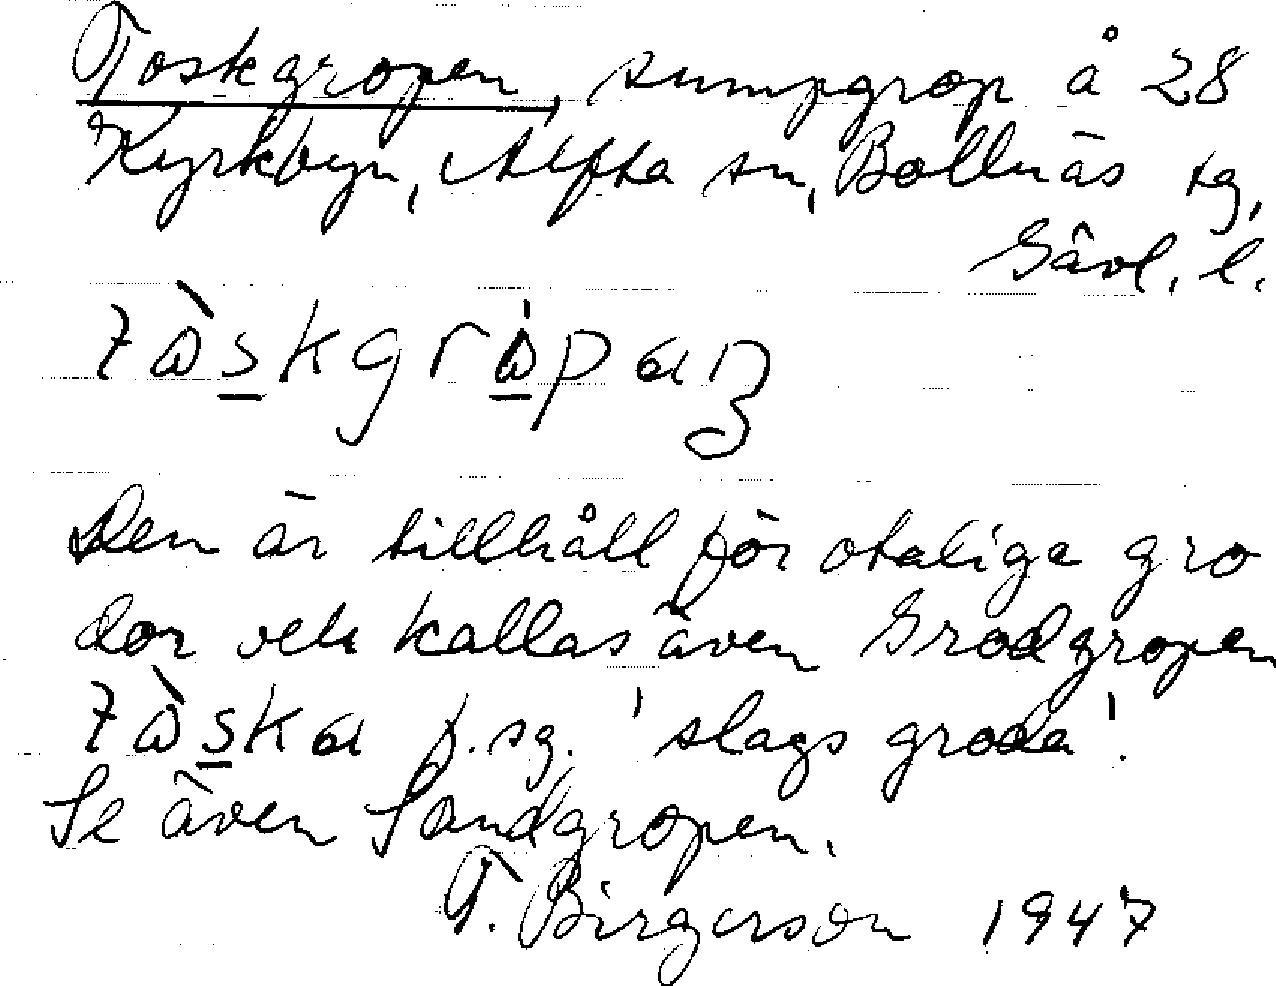 Toskgropen, sumpgrop å 28
Kyrkbyn, Alfta sn, Bollnäs tg,
Gävl. l.
Den är tillhåll för otaliga gro
dor och kallas även Grodgropen
f. sg. 'slags groda'.
Se även Sandgropen.
T. Birgerson 1947